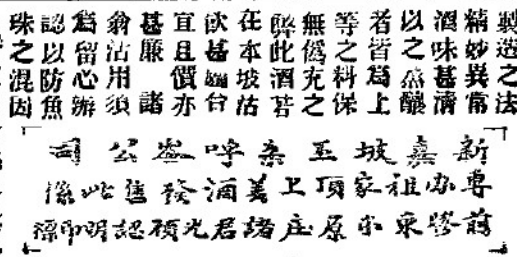 製造之法
精妙異常
酒味甚清
以之蒸釀
者皆爲上
等之料保
無僞充之
弊此酒若
在本坡沽
飲甚台
宜且價亦
甚廉 諸
翁沽用須
爲留心辦
認以防魚
珠之混因
新嘉坡王桒呼崙公司
專办祖家頂上美酒發售此係
來原庄諸君光顧認明印標